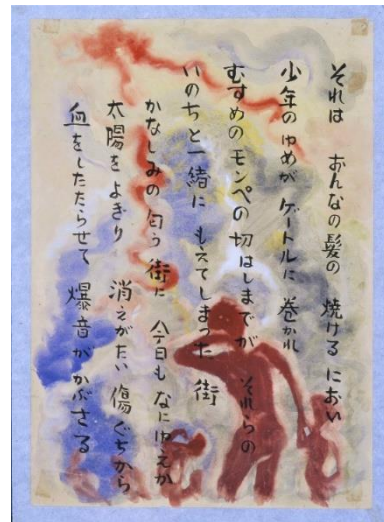 それは おんなの髪の 焼ける におい
少年のゆめが ゲートルに 巻かれ
むすめのモンペの切はしまでが それらの
いのちと一緒に もえてしまった 街
かなしみの匂う 街に 今日も なにゆえか
太陽をよぎり 消えがたい 傷ぐちから
血をしたたらせて 爆音がかぶさる